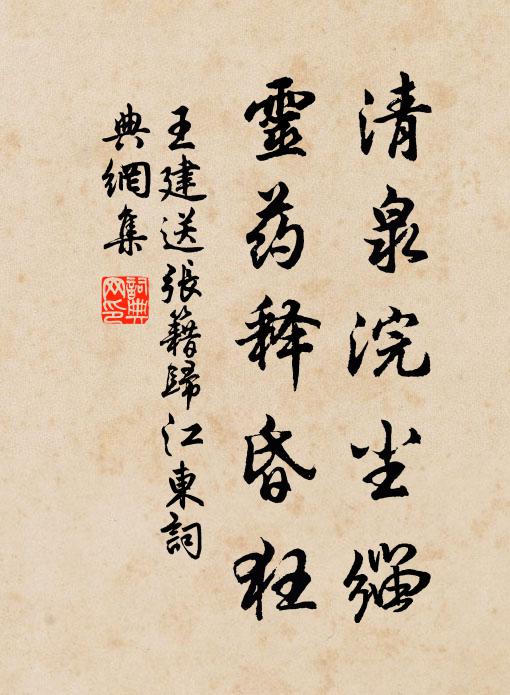 清泉浣尘缁
靈药释昏狂
王建送張籍歸江東詞
典網集
詞典网印